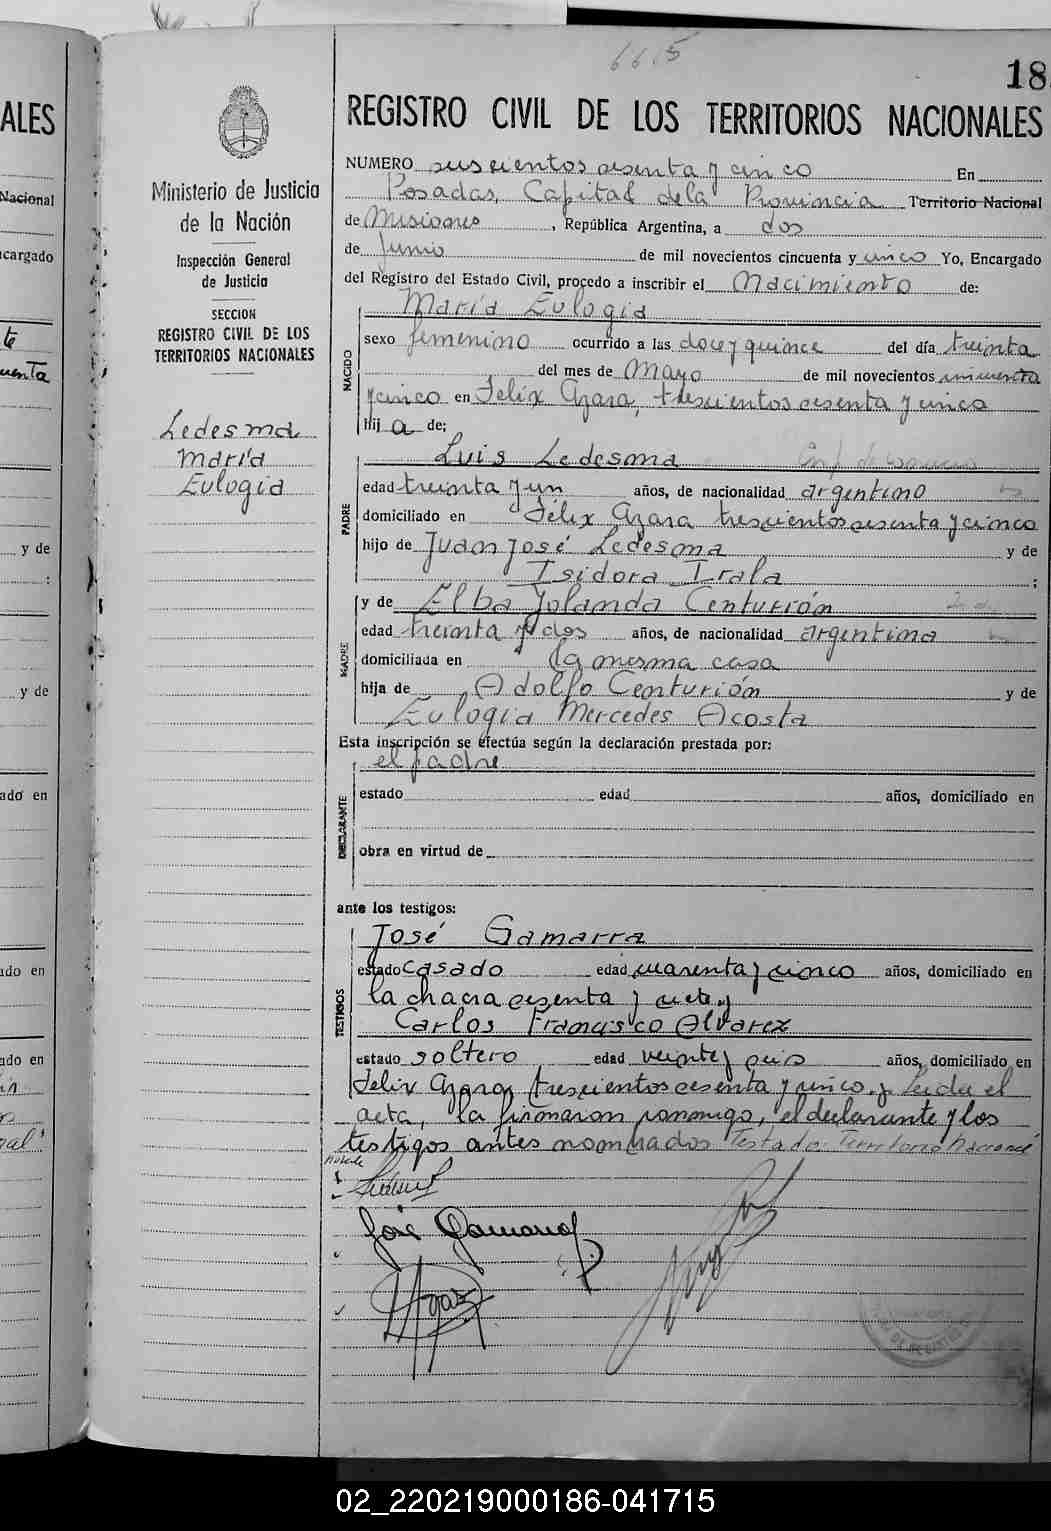 6615
18
ALES
REGISTRO CIVIL DE LOS TERRITORIOS NACIONALES
Ministerio de Justicia
de la Nación
Inspección General
de Justicia
SECCION
REGISTRO CIVIL DE LOS
TERRITORIOS NACIONALES
Ledesma
María
Eulogia
NUMERO seiscientos sesenta y cinco En
Posadas, Capital de la Provincia Territorio Nacional
de Misiones, República Argentina, a dos
de Junio de mil novecientos cincuenta y cinco Yo, Encargado
del Registro del Estado Civil, procedo a inscribir el Nacimiento de:
María Eulogia
NACIDO
sexo femenino ocurrido a las doce y quince del día treinta
del mes de Mayo de mil novecientos cincuenta
y cinco en Félix Azara, trescientos sesenta y cinco
Hij a de:
Luis Ledesma
PADRE
edad treinta y un años, de nacionalidad argentino
domiciliado en Félix Azara trescientos sesenta y cinco
hijo de Juan José Ledesma y de
Isidora Irala ;
MADRE
y de Elba Yolanda Centurión
edad treinta y dos años, de nacionalidad argentina
domiciliada en la misma casa
hija de Adolfo Centurión y de
Eulogia Mercedes Acosta
Esta inscripción se efectúa según la declaración prestada por:
el padre
DECLARANTE
estado edad años, domiciliado en
obra en virtud de
ante los testigos:
José Gamarra
TESTIGOS
estado casado edad cuarenta y cinco años, domiciliado en
la chacra sesenta y siete y
Carlos Francisco Alvarez
estado soltero edad veinte y seis años, domiciliado en
Felix Azara, trescientos sesenta y cinco. y Leida el
acta, la firmaron conmigo, el declarante y los
testigos antes nombrados Testado: Territorio Nacional
José Gamarra
Nacional
cargado
te
uenta
y de
:
y de
ado en
ado en
ado en
02_220219000186-041715